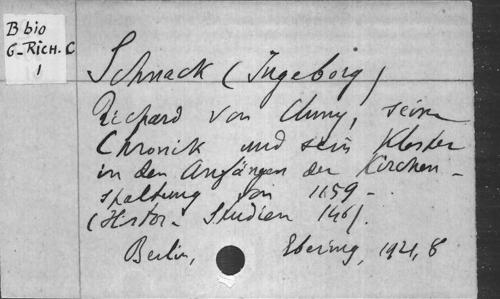 B bio
G-Rich. C
1
Schnack (Ingeborg)
Richard von Cluny, seine
Chronik und sein Kloster
in den Anfängen der Kirchen-
spaltung von 1159 -
(Histor. Studien 146).
Berlin, Ebering, 1921, 8